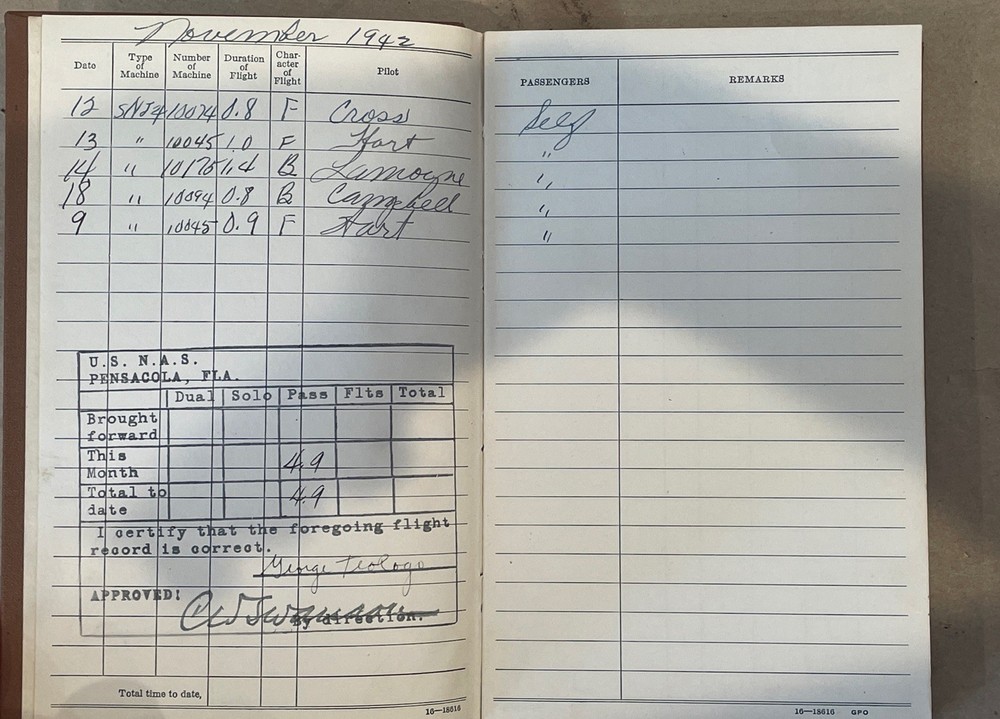 November 1942
Date Type of Machine Number of Machine Duration of Flight Char-acter of Flight Pilot PASSENGERS REMARKS
12 SNJ4 10024 0.8 F Cross Self
13 " 10045 1.0 F Hart "
14 " 10175 1.4 B Lamoyne "
18 " 10094 0.8 B Campbell "
9 " 10045 0.9 F Hart "
U.S. N.A.S.
PENSACOLA, FLA.
Dual Solo Pass Flts Total
Brought forward
This Month 4.9
Total to date 4.9
I certify that the foregoing flight
record is correct.
George Teologo
APPROVED!
By direction.
Total time to date,
16—18616
16—18616 GPO